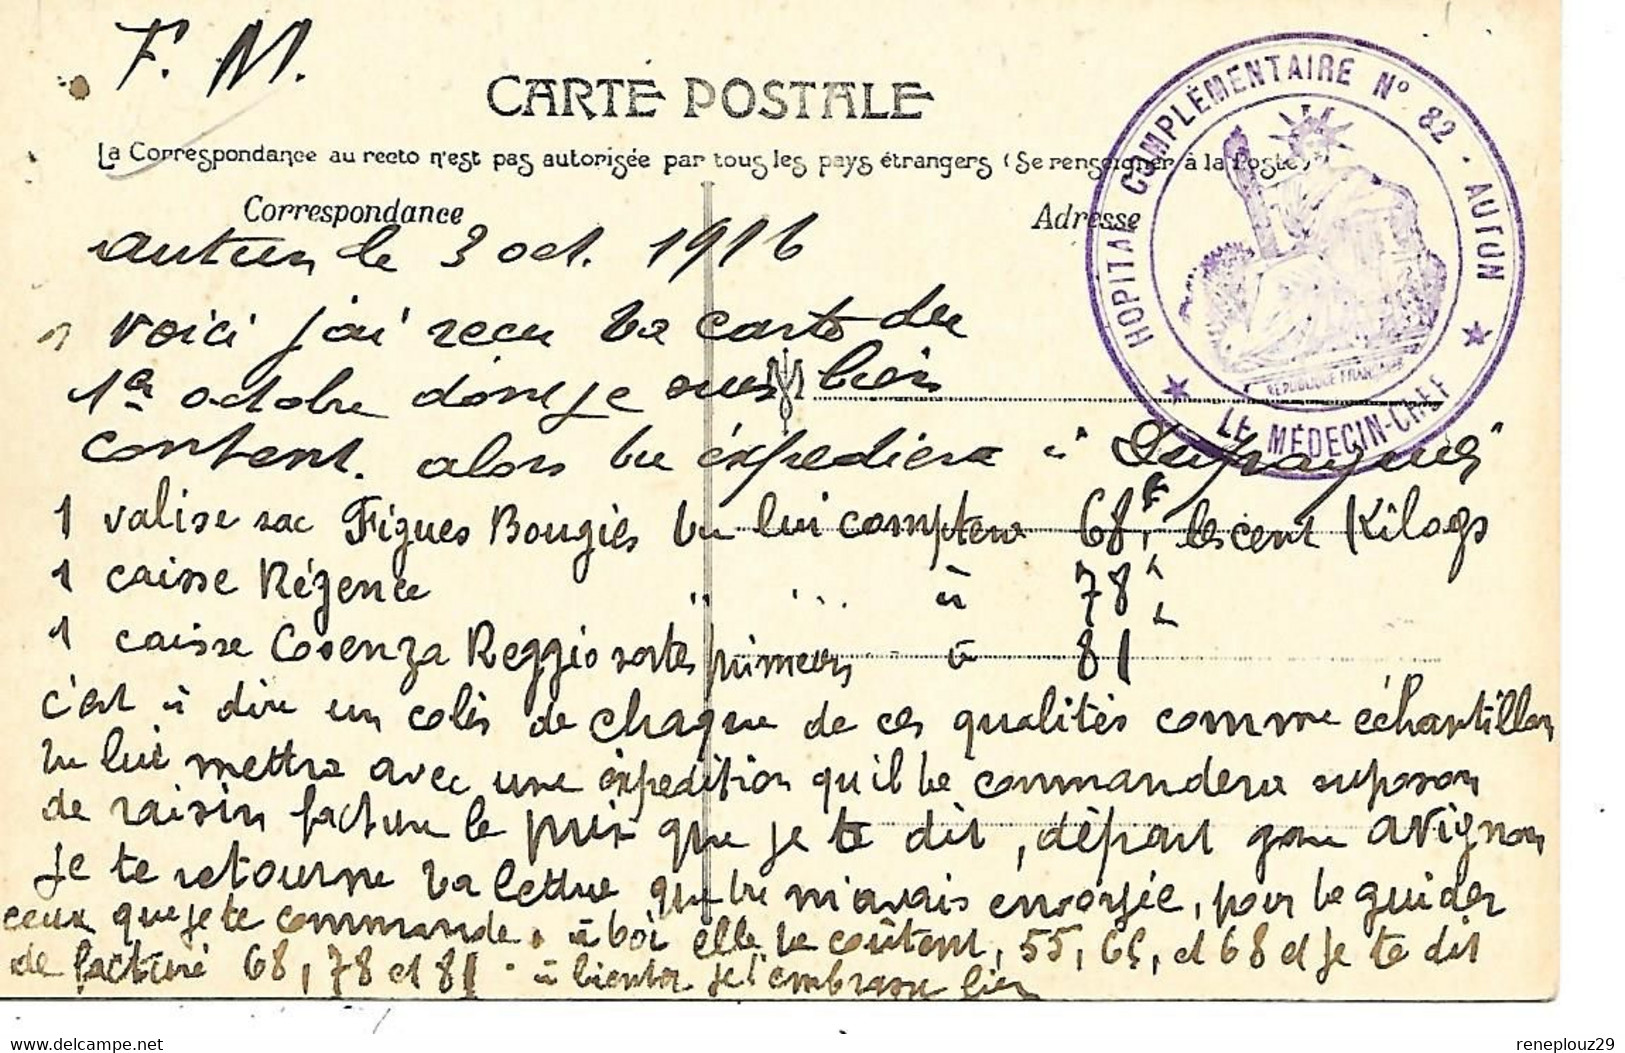 F. M.
CARTE POSTALE
La Correspondance au recto n'est pas autorisée par tous les pays étrangers (Se renseigner à la Poste)
Correspondance
Adresse
HOPITAL COMPLÉMENTAIRE N° 82 · AUTUN
RÉPUBLIQUE FRANÇAISE
LE MÉDECIN-CHEF
autun le 3 oct. 1916
voici j'ai recu ta carte du
1er octobre dont je suis bien
content. alors tu éxpediera à
1 valise sac Figues Bougies tu lui comptera 68f les cent Kilogs
1 caisse Régence " " à 78f
1 caisse Cosenza Reggio sortes primeurs à 81f
c'est à dire un colis de chaque de ces qualités comme échantillon
tu lui mettra avec une éxpedition qu'il te commandera suposon
de raisin facture le prix que je te dit, départ gare avignon
je te retourne ta lettre que tu m'avais envoyée, pour te guider
ceux que je te commande. à toi elle te coûtent, 55, 65, et 68 et je te dit
de facturé 68, 78 et 81 . à bientot je t'embrasse bien
delcampe.net
reneplouz29